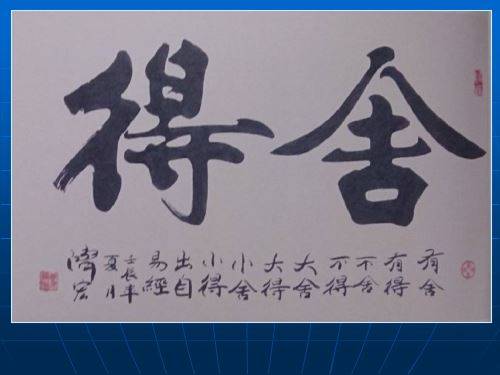 舍得
有舍
有得
不舍
不得
大舍
大得
小舍
小得
出自
易經
壬辰年
夏月